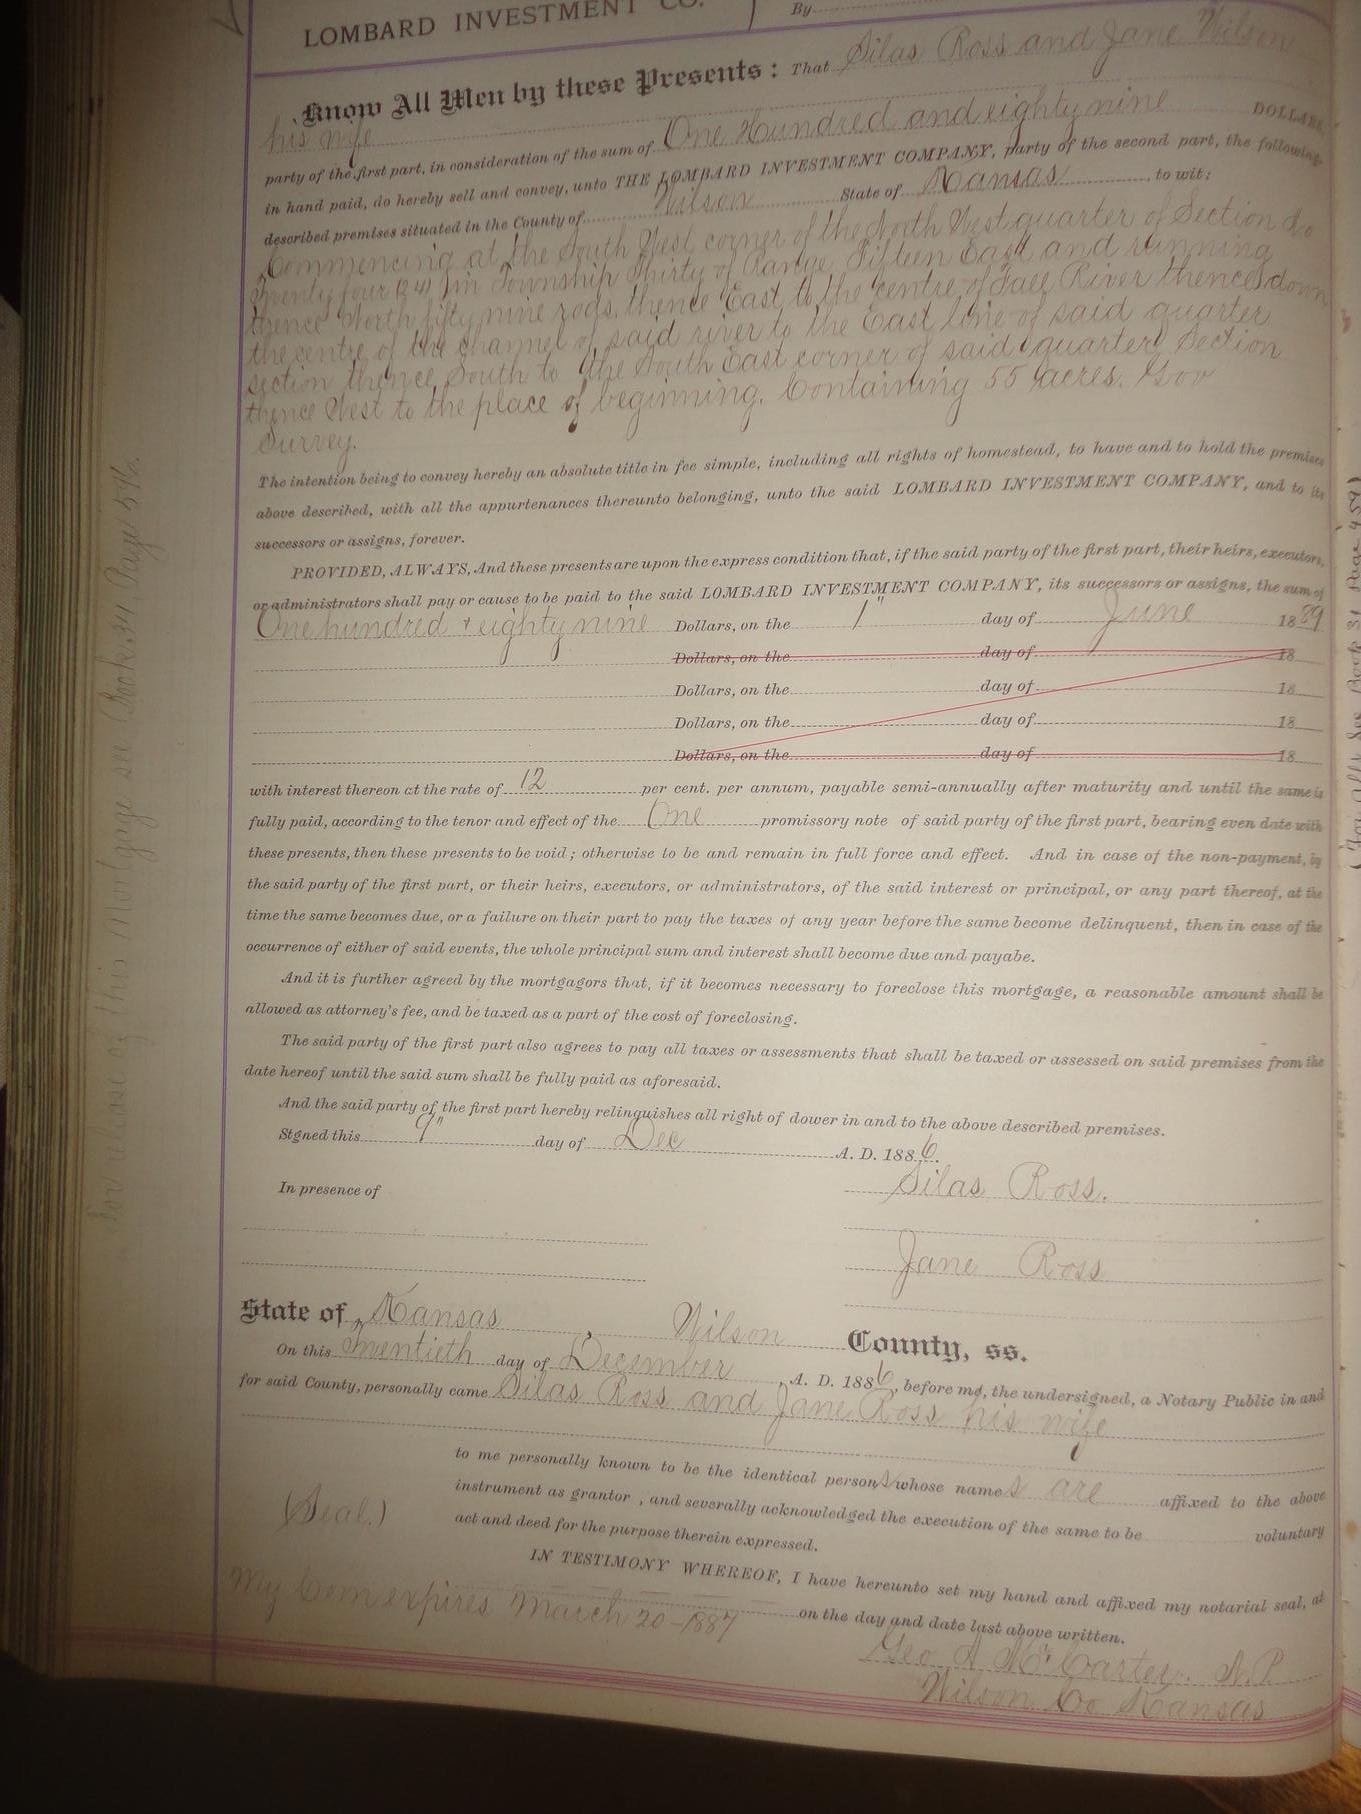 LOMBARD INVESTMENT CO.
By
Know All Men by these Presents: That Silas Ross and Jane Wilson
his wife
party of the first part, in consideration of the sum of One Hundred and eighty nine DOLLARS
in hand paid, do hereby sell and convey, unto THE LOMBARD INVESTMENT COMPANY, party of the second part, the following
described premises situated in the County of Wilson State of Kansas, to wit:
Commencing at the South West corner of the North West quarter of Section No
Twenty four (24) in Township Thirty of Range Fifteen East and running
thence North fifty nine rods, thence East to the centre of Fall River thence down
the centre of the channel of said river to the East line of said quarter
section thence South to the South East corner of said quarter Section
thence West to the place of beginning. Containing 55 acres. Gov
Survey.
The intention being to convey hereby an absolute title in fee simple, including all rights of homestead, to have and to hold the premises
above described, with all the appurtenances thereunto belonging, unto the said LOMBARD INVESTMENT COMPANY, and to its
successors or assigns, forever.
PROVIDED, ALWAYS, And these presents are upon the express condition that, if the said party of the first part, their heirs, executors,
or administrators shall pay or cause to be paid to the said LOMBARD INVESTMENT COMPANY, its successors or assigns, the sum of
One hundred & eighty nine Dollars, on the 1" day of June 1889
Dollars, on the day of 18
Dollars, on the day of 18
Dollars, on the day of 18
Dollars, on the day of 18
with interest thereon at the rate of 12 per cent. per annum, payable semi-annually after maturity and until the same is
fully paid, according to the tenor and effect of the One promissory note of said party of the first part, bearing even date with
these presents, then these presents to be void; otherwise to be and remain in full force and effect. And in case of the non-payment, by
the said party of the first part, or their heirs, executors, or administrators, of the said interest or principal, or any part thereof, at the
time the same becomes due, or a failure on their part to pay the taxes of any year before the same become delinquent, then in case of the
occurrence of either of said events, the whole principal sum and interest shall become due and payabe.
And it is further agreed by the mortgagors that, if it becomes necessary to foreclose this mortgage, a reasonable amount shall be
allowed as attorney's fee, and be taxed as a part of the cost of foreclosing.
The said party of the first part also agrees to pay all taxes or assessments that shall be taxed or assessed on said premises from the
date hereof until the said sum shall be fully paid as aforesaid.
And the said party of the first part hereby relinquishes all right of dower in and to the above described premises.
Signed this 9" day of Dec A. D. 1886.
In presence of
Silas Ross.
Jane Ross
State of Kansas, Wilson County, ss.
On this Twentieth day of December, A. D. 1886, before me, the undersigned, a Notary Public in and
for said County, personally came Silas Ross and Jane Ross his wife
to me personally known to be the identical persons whose names are affixed to the above
instrument as grantor , and severally acknowledged the execution of the same to be voluntary
act and deed for the purpose therein expressed.
(Seal.)
IN TESTIMONY WHEREOF, I have hereunto set my hand and affixed my notarial seal, at
on the day and date last above written.
My Com expires March 20-1887
Geo A McCarter. N.P.
Wilson Co Kansas
For release of this Mortgage see Book 34 Page 576.
See Book 31 Page 459)